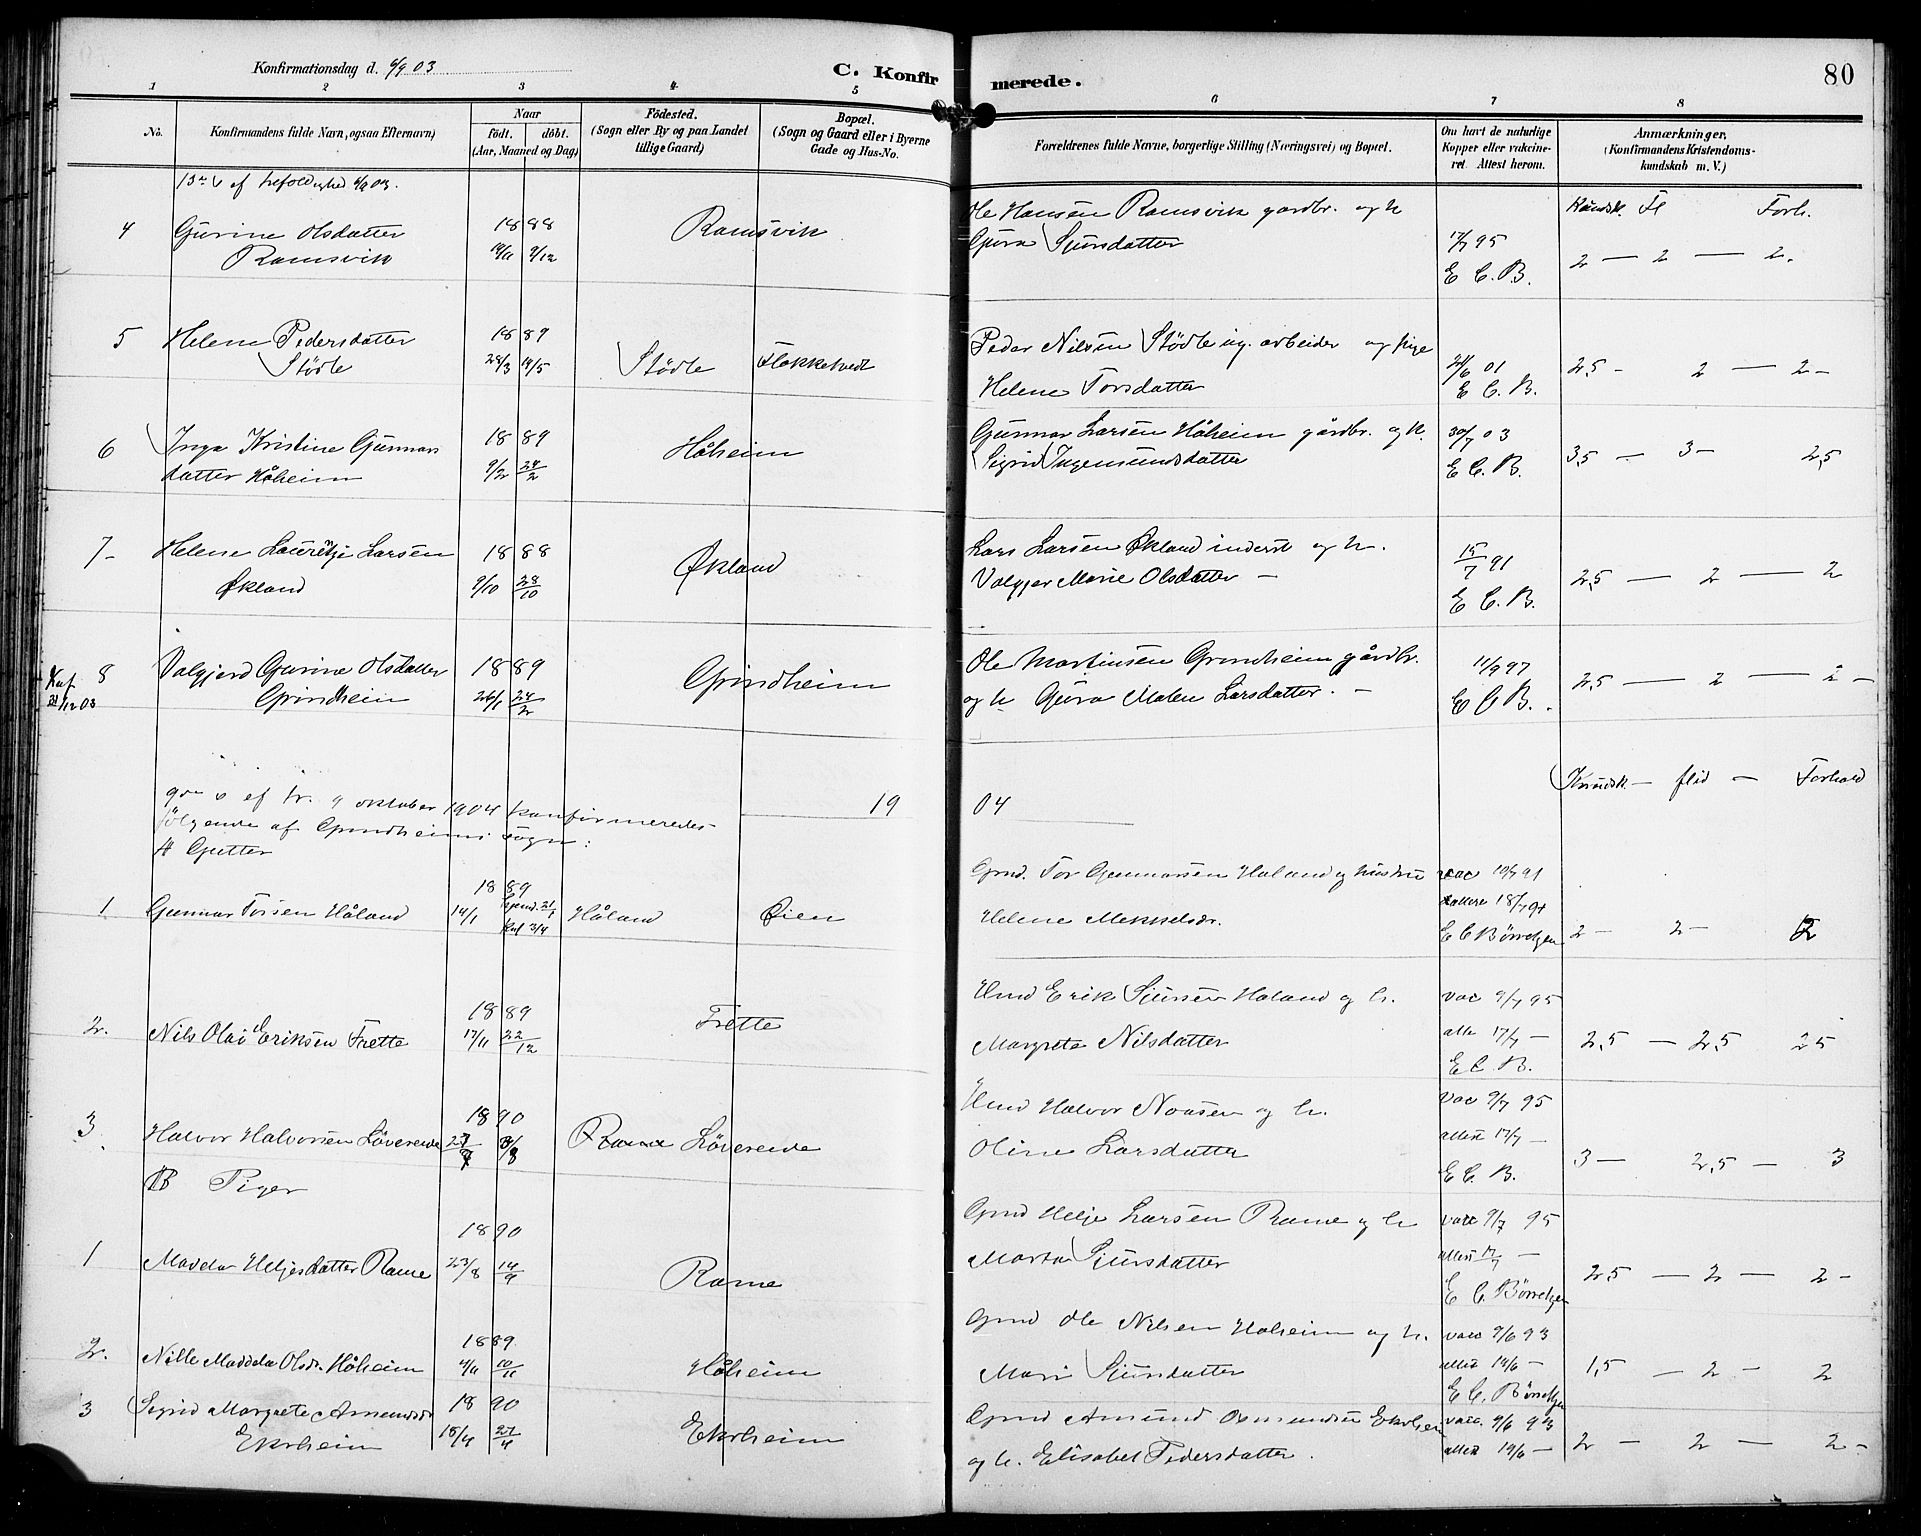 Konfirmationsdag d. 6/9 03
C. Konfirmerede.
80
1 2 3 4 5 6 7 8
No.
Konfirmandens fulde Navn, ogsaa Efternavn)
Naar
födt. döbt.
(Aar, Maaned og Dag)
Födested.
(Sogn eller By og paa Landet
tillige Gaard)
Bopæl.
(Sogn og Gaard eller i Byerne
Gade og Hus-No.
Forældrenes fulde Navne, borgerlige Stilling (Næringsvei) og Bopæl.
Om havt de naturlige
Kopper eller vakcine-
ret. Attest herom.
Anmærkninger,
(Konfirmandens Kristendoms-
kundskab m. V.)
13de s ef trefoldighed 6/9 03.
Kundsk. Fl Forh.
4 Gurine Olsdatter
Ramsvik
1888
14/11 9/12
Ramsvik
Ole Hansen Ramsvik gardbr. og h
Gura Sjursdatter
17/7 95
E C. B.
2 — 2 — 2.
5 Helene Pedersdatter
Stödle
1889
28/3 19/5
Stödle Flokketvedt
Peder Nilsen Stödle ug. arbeider og pige
Helene Torsdatter
21/6 01
E C. B.
2,5 - 2 — 2 -
6 Inga Kristine Gunnars
datter Håheim
1889
9/2 24/2
Håheim
Gunnar Larsen Håheim gårdbr. og h.
Sigrid Ingemundsdatter
30/7 03
E C. B.
3,5 — 3 - 2,5
7- Helene Lauritze Larsen
Økland
1888
9/10 28/10
Økland
Lars Larsen Økland inderst og h.
Valgjer Marie Olsdatter —
15/7 91
E C. B.
2,5 — 2 — 2
8 Valgjerd Gurine Olsdatter
Grindheim
1889
26/1 24/2
Grindheim
Ole Martinsen Grindheim gårdbr.
og h Gura Malen Larsdatter. —
11/9 97
E C B.
2,5 — 2 — 2 -
Kundsk. — flid — Forhold
9de s ef tr. 9 oktober 1904 konfirmeredes
følgende af Grindheims sogn:
A Gutter
19 04
1 Gunnar Torsen Håland
1889
14/1 hjemd. 21/1
Kaf 3/4
Håland Øien
Gmd. Tor Gunnarsen Haland og hustru
Helene Mekkelsdr.
vac 10/7 91
attest 18/7 91
E C Börretzen
2 - 2 - 2
2. Nils Olai Eriksen Frette
1889
17/11 22/12
Frette
Hmd Erik Sjursen Haland og h.
Margreta Nilsdatter
vac 9/7 95
atte 17/7 —
E C. B.
2,5 — 2,5 2,5
3 Halvor Halvorsen Lövereide
1890
8/8
Rame Lövereide
Hmd Halvor Noasen og h.
Oline Larsdatter
vac 9/7 95
attest 17/7 —
E C. B.
3 — 2,5 — 3
B Piger
1 Madela Heljesdatter Rame
1890
23/8 14/9
Rame
Gmd Helje Larsen Rame og h
Marta Sjursdatter
vacc 9/7 95
attest 17/7 —
E C. Börretzen
2,5 — 2 — 2 -
2. Nille Maddela Olsdr. Håheim
1889.
4/11 10/11
Håheim
Gmd Ole Nilsen Håheim og h.
Mari Sjursdatter
vacc 9/6 93
attest 19/6 —
E C. Börretzen
1,5 — 2 — 2
3 Sigrid Margrete Amundsdr
Ekrheim
1890
15/4 27/4
Ekrheim
Gmd Amund Osmundsen Ekrheim
og h. Elisabet Pedersdatter.
vacc. 9/6 93
attest 19/6 —
2 — 2 — 2 -